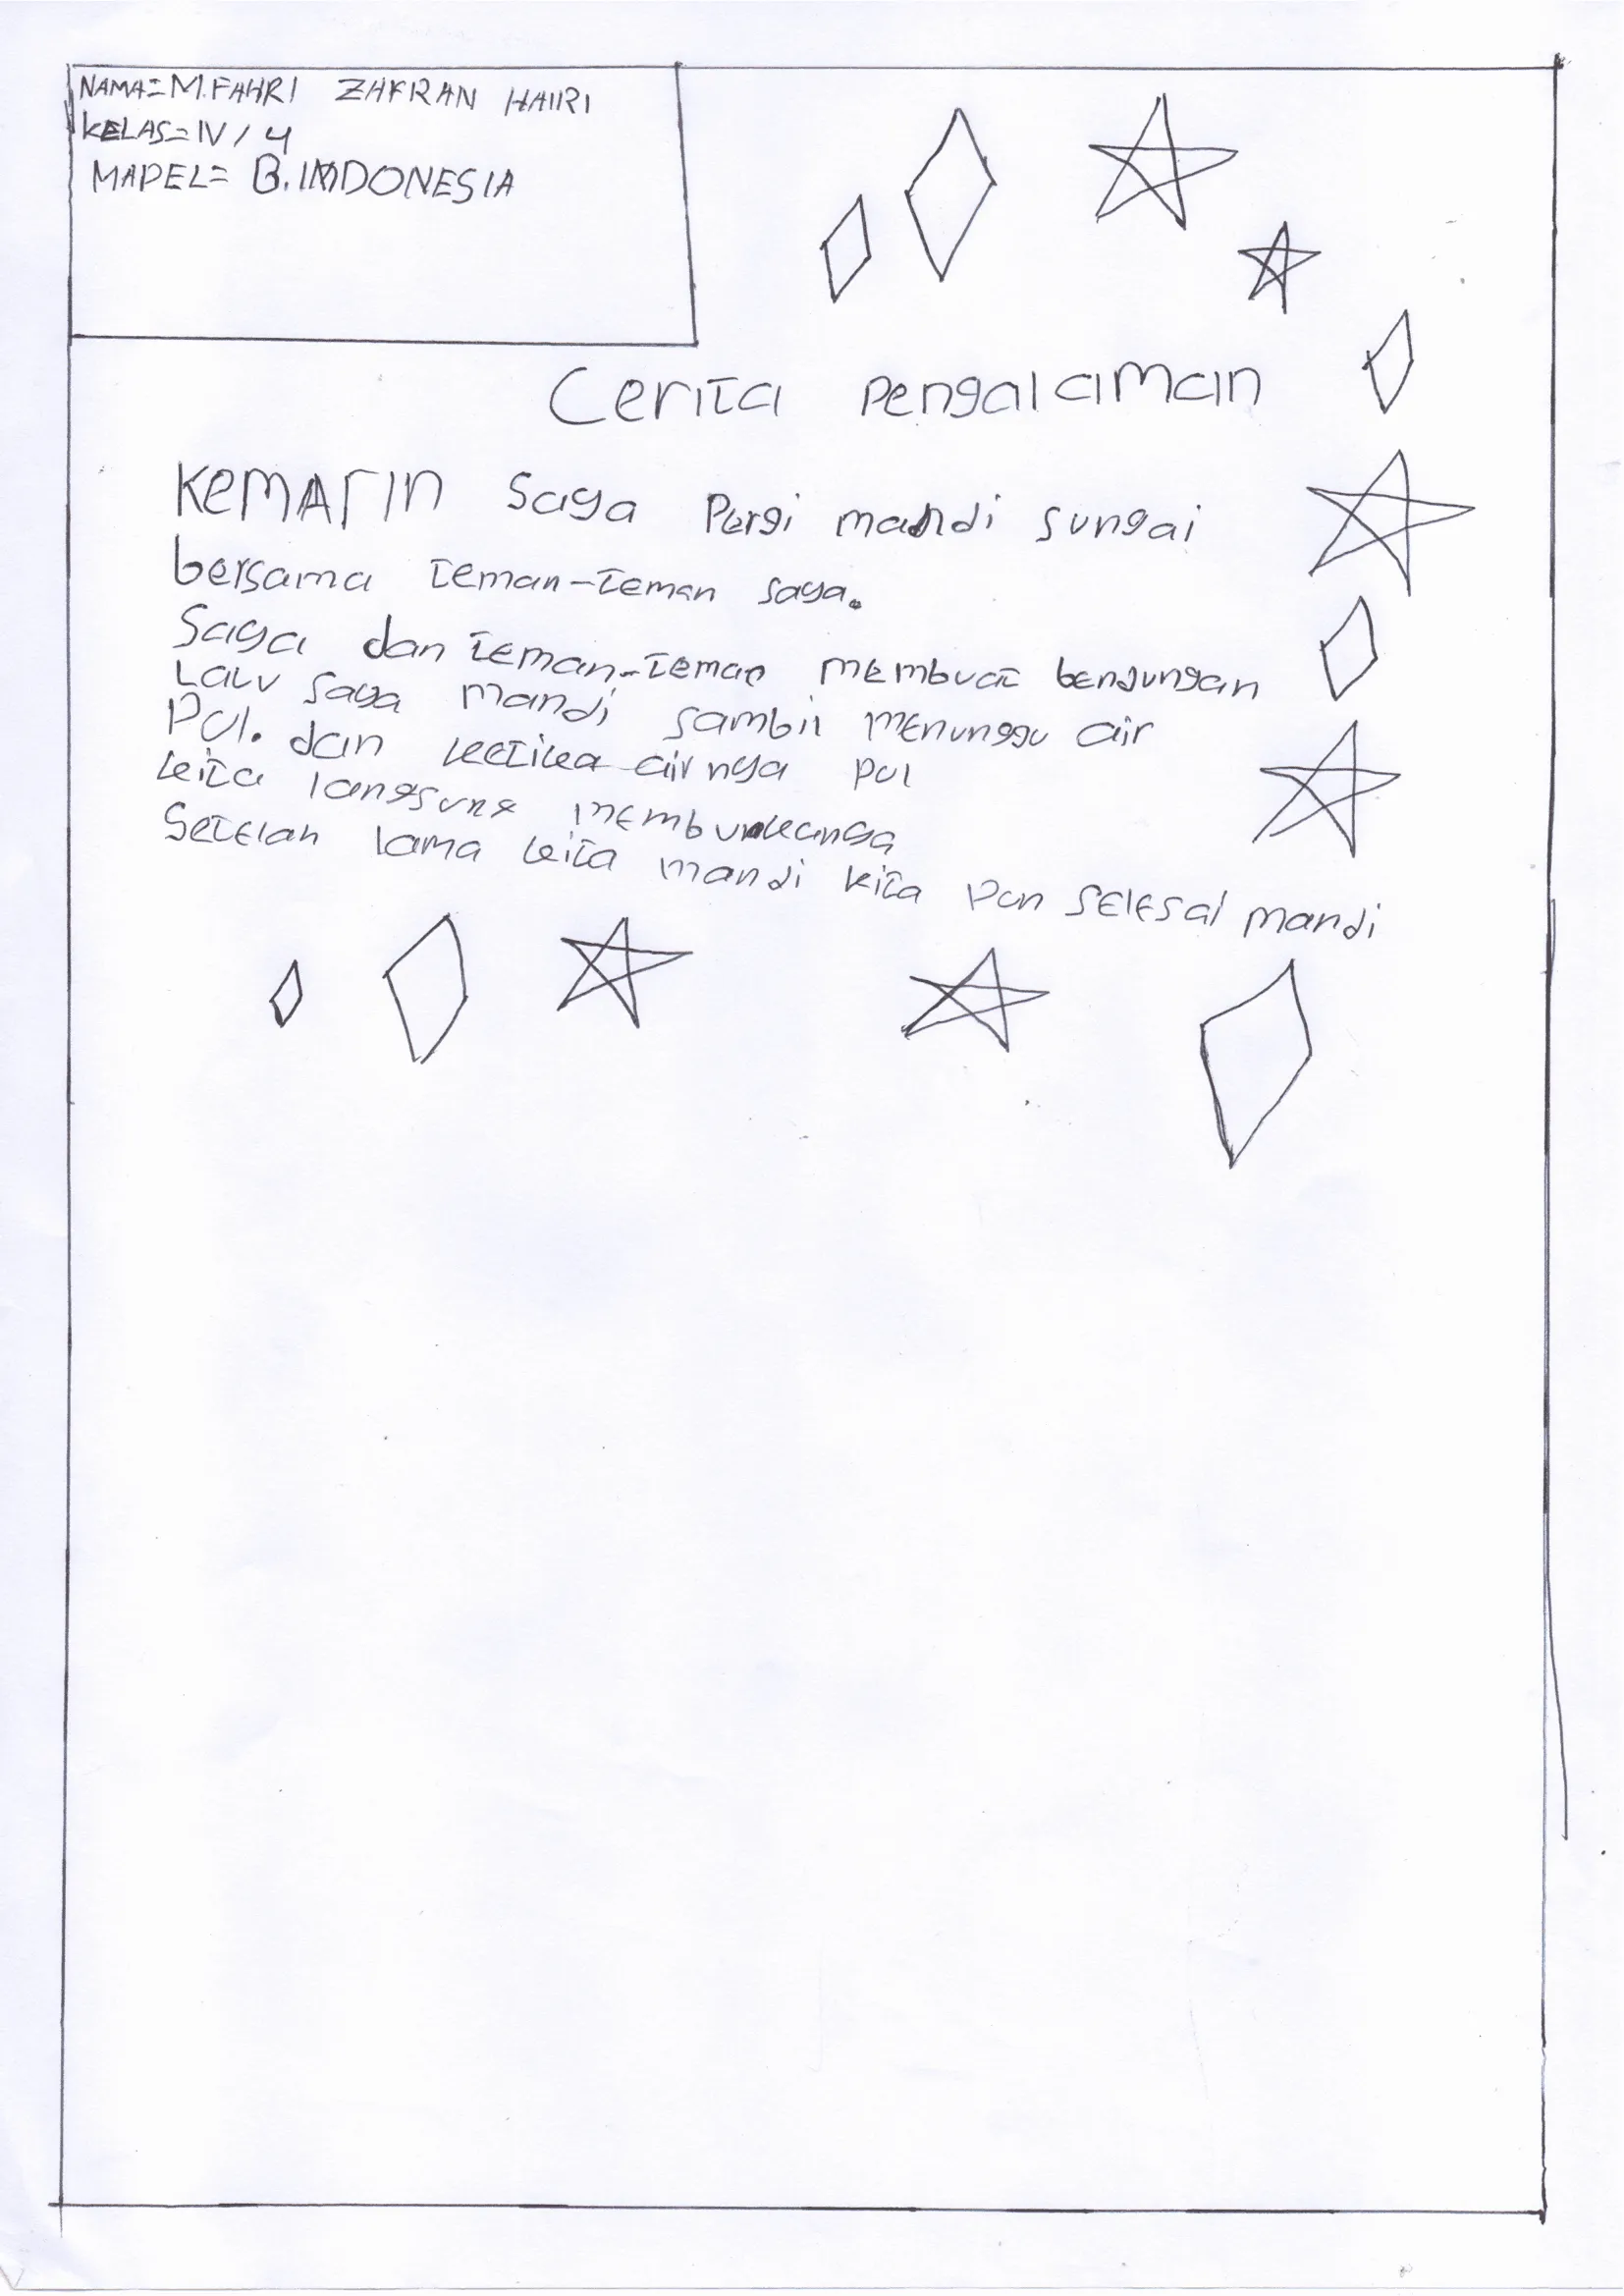 NAMA=M.FAHRI ZAFRAN HAIRI
KELAS=IV/4
MAPEL= B.INDONESIA
Cerita pengalaman
KEMArIn saya Pergi mandi sungai
bersama teman-teman saya.
Saya dan teman-teman membuat bendungan
Lalu saya mandi sambil menunggu air
Pul. dan ketika airnya pul
kita langsung membukanya
Setelah lama kita mandi kita pun selesai mandi